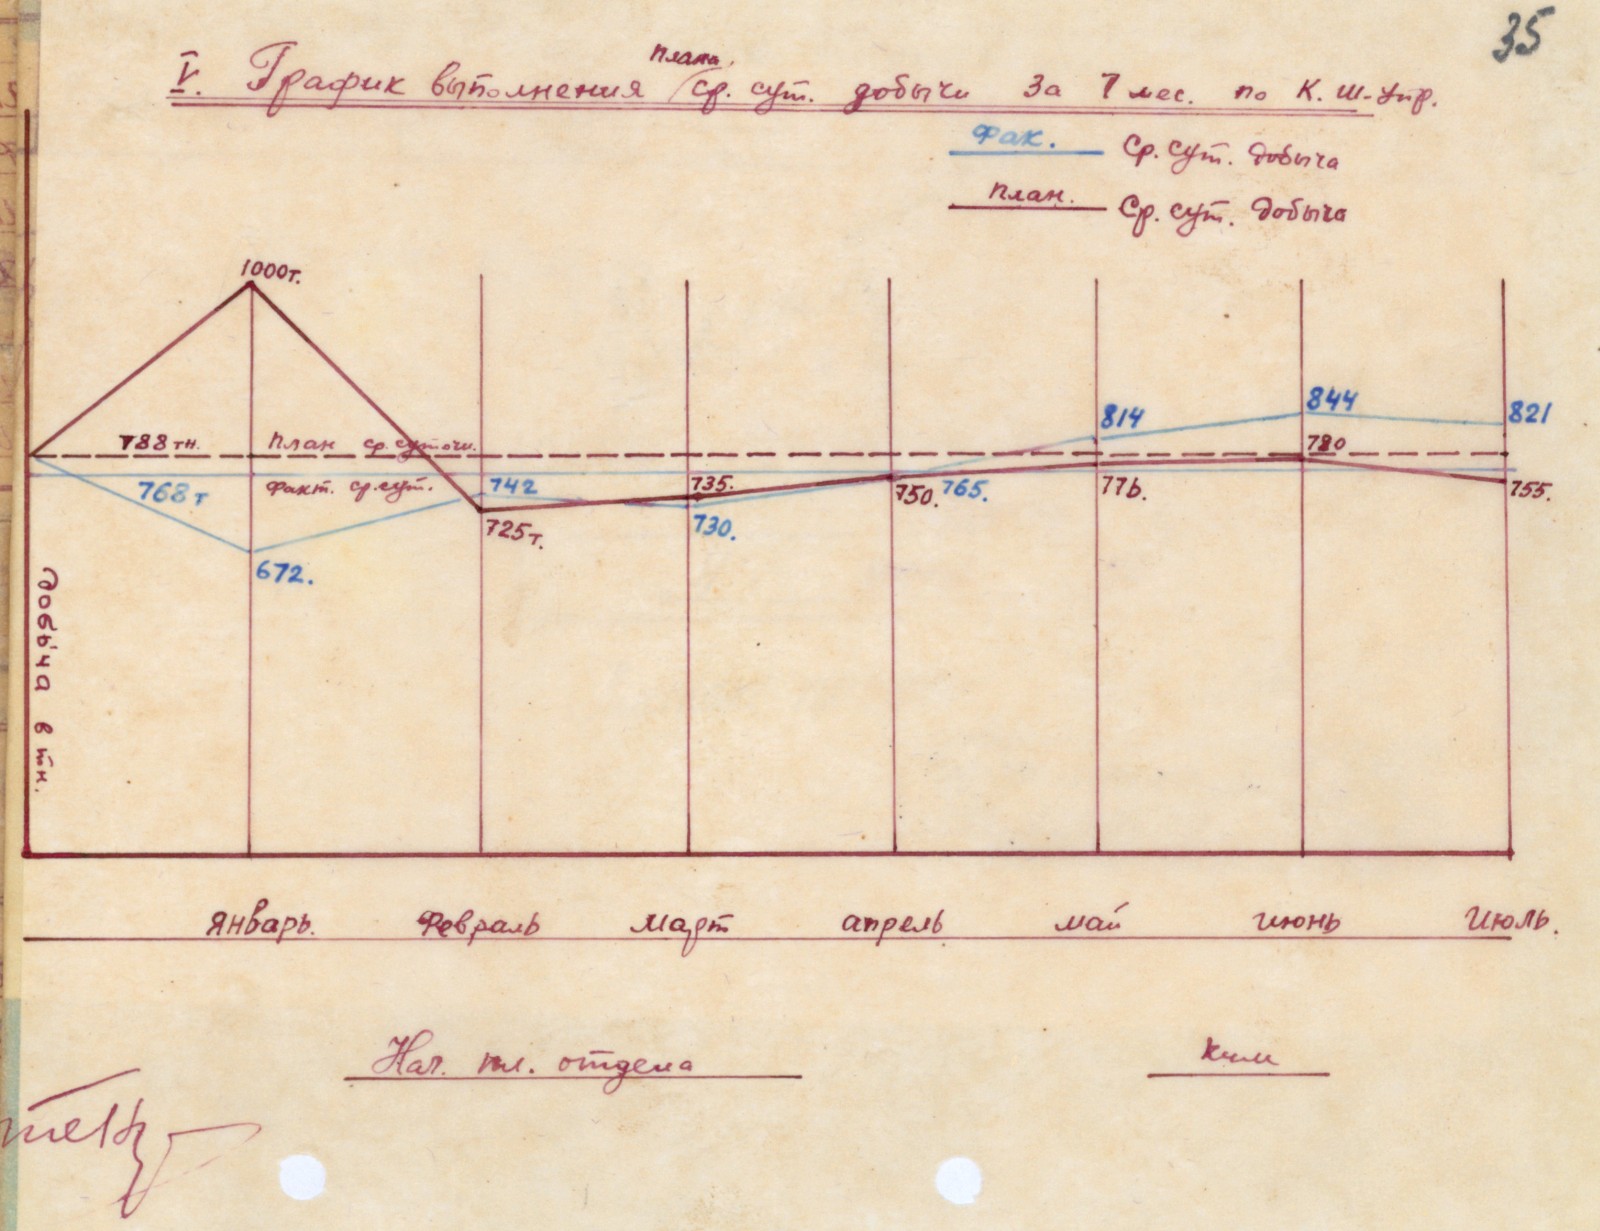 35
плана
V. График выполнения ср. сут. добычи за 7 мес. по К. Ш-Упр.
Фак. Ср. сут. добыча
план. Ср. сут. добыча
1000т.
814 844 821
788тн. план ср. суточн. 780
768т Факт. ср. сут. 742 735. 750. 765. 776. 755.
725т. 730.
672.
добыча в тн.
январь. февраль март апрель май июнь июль.
Нач. пл. отдела Ким